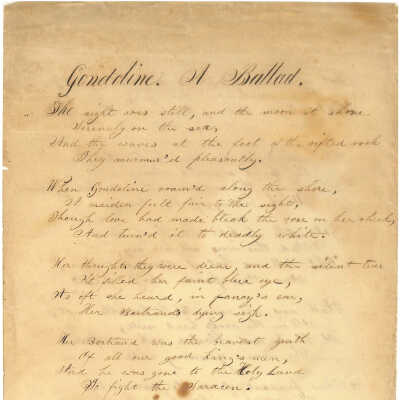 Gondoline. A Ballad.
The night was still, and the moon it shone
Serenely on the sea,
And the waves at the foot of the rifted rock
They murmur'd pleasantly.
When Gondoline roam'd along the shore,
A maiden full fair to the sight,
Though love had made bleak the rose on her cheek,
And turn'd it to deadly white.
Her thoughts they were drear, and the silent tear
It filled her faint blue eye,
As oft she heard, in fancy's ear,
Her Bertrand's dying sigh.
Her Bertrand was the bravest youth
Of all our good King's men,
And he was gone to the Holy Land
To fight the Saracen.